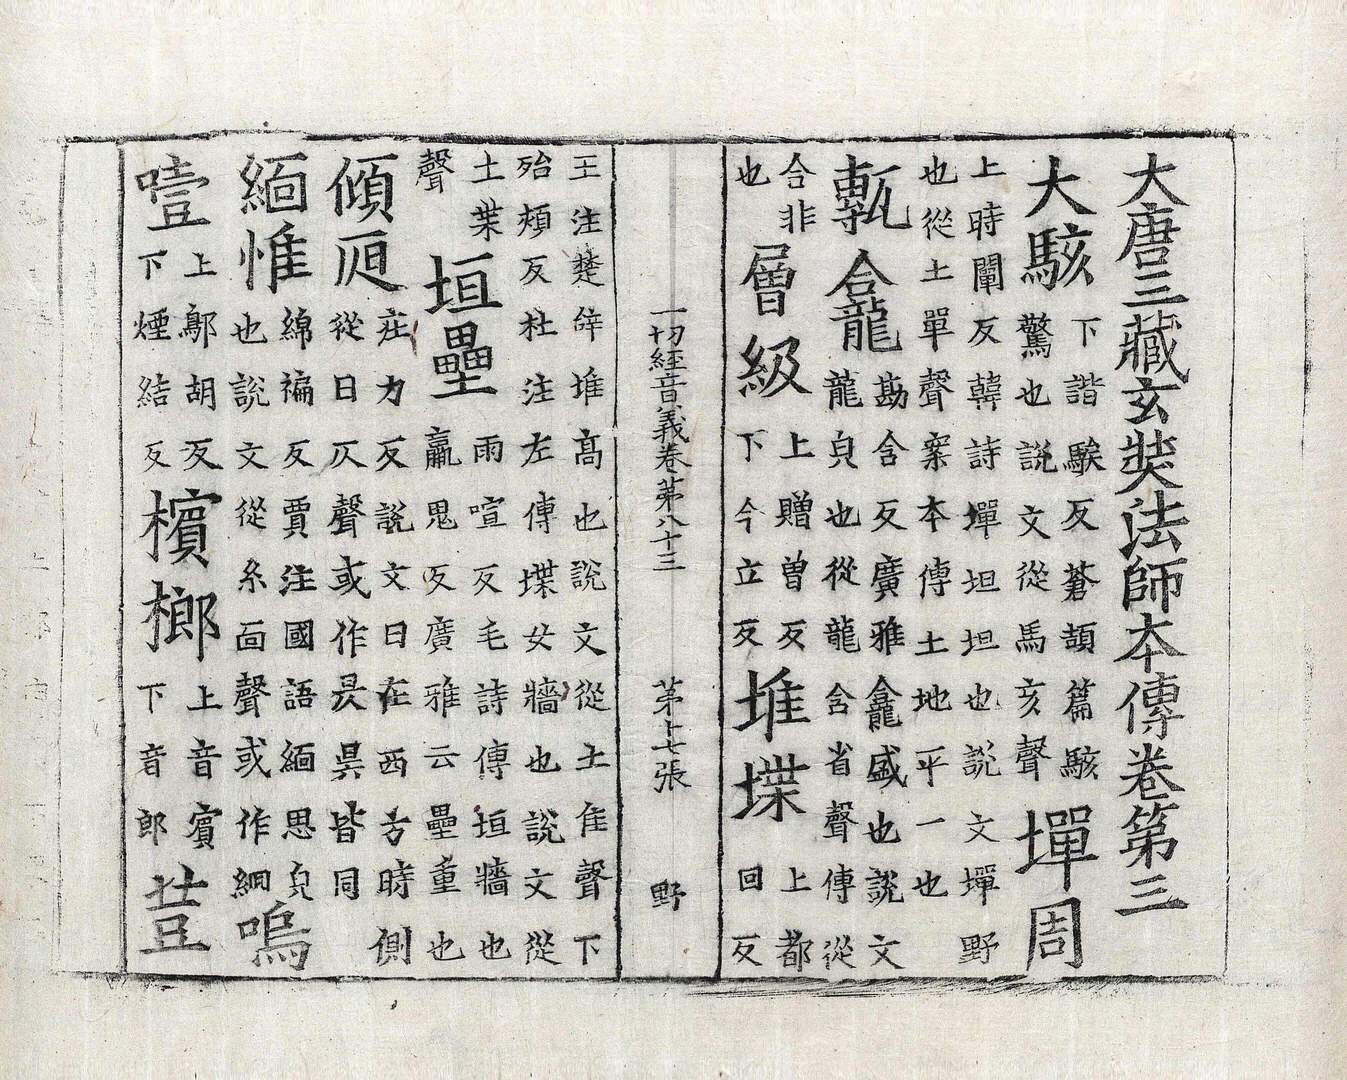 大唐三藏玄奘法師本傳卷第三
大駭
下諧騃反蒼頡篇駭
驚也說文從馬亥聲
墠周
上時闡反韓詩墠坦坦也說文墠野
也從土單聲案本傳土地平一也
甎龕
勘含反廣雅龕盛也說文
龍皃也從龍含省聲傳從
合非
也
層級
上贈曽反
下今立反
堆堞
上都
回反
一切經音義卷苐八十三 苐十七張 野
王注楚辝堆髙也說文從土隹聲下
殆頰反杜注左傳堞女牆也說文從
土枼
聲
垣壘
雨喧反毛詩傳垣牆也
羸鬼反廣雅云壘重也
傾
庄力反說文日在西方時側
從日仄聲或作昗皆同
緬惟
綿褊反賈注國語緬思皃
也說文從糸面聲或作絤
嗚
噎
上鄔胡反
下煙結反
檳榔
上音賓
下音郎
荳